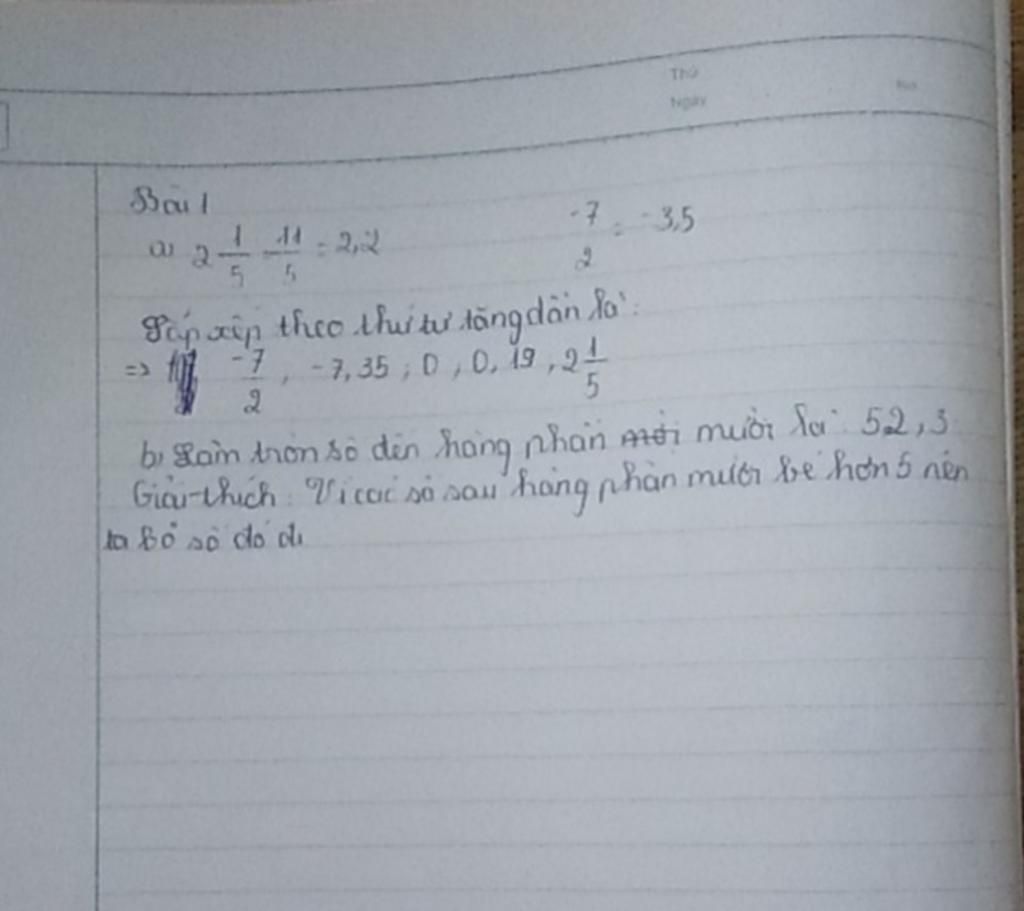 Thứ
Ngày
No.
Bài 1
a) 2 1/5 = 11/5 = 2,2 -7/2 = -3,5
Sắp xếp theo thứ tự tăng dần là:
=> -7/2, -7,35; 0, 0,19, 2 1/5
b, Làm tròn số đến hàng phần mười là: 52,3
Giải thích: Vì các số sau hàng phần mười bé hơn 5 nên
ta bỏ số đó đi